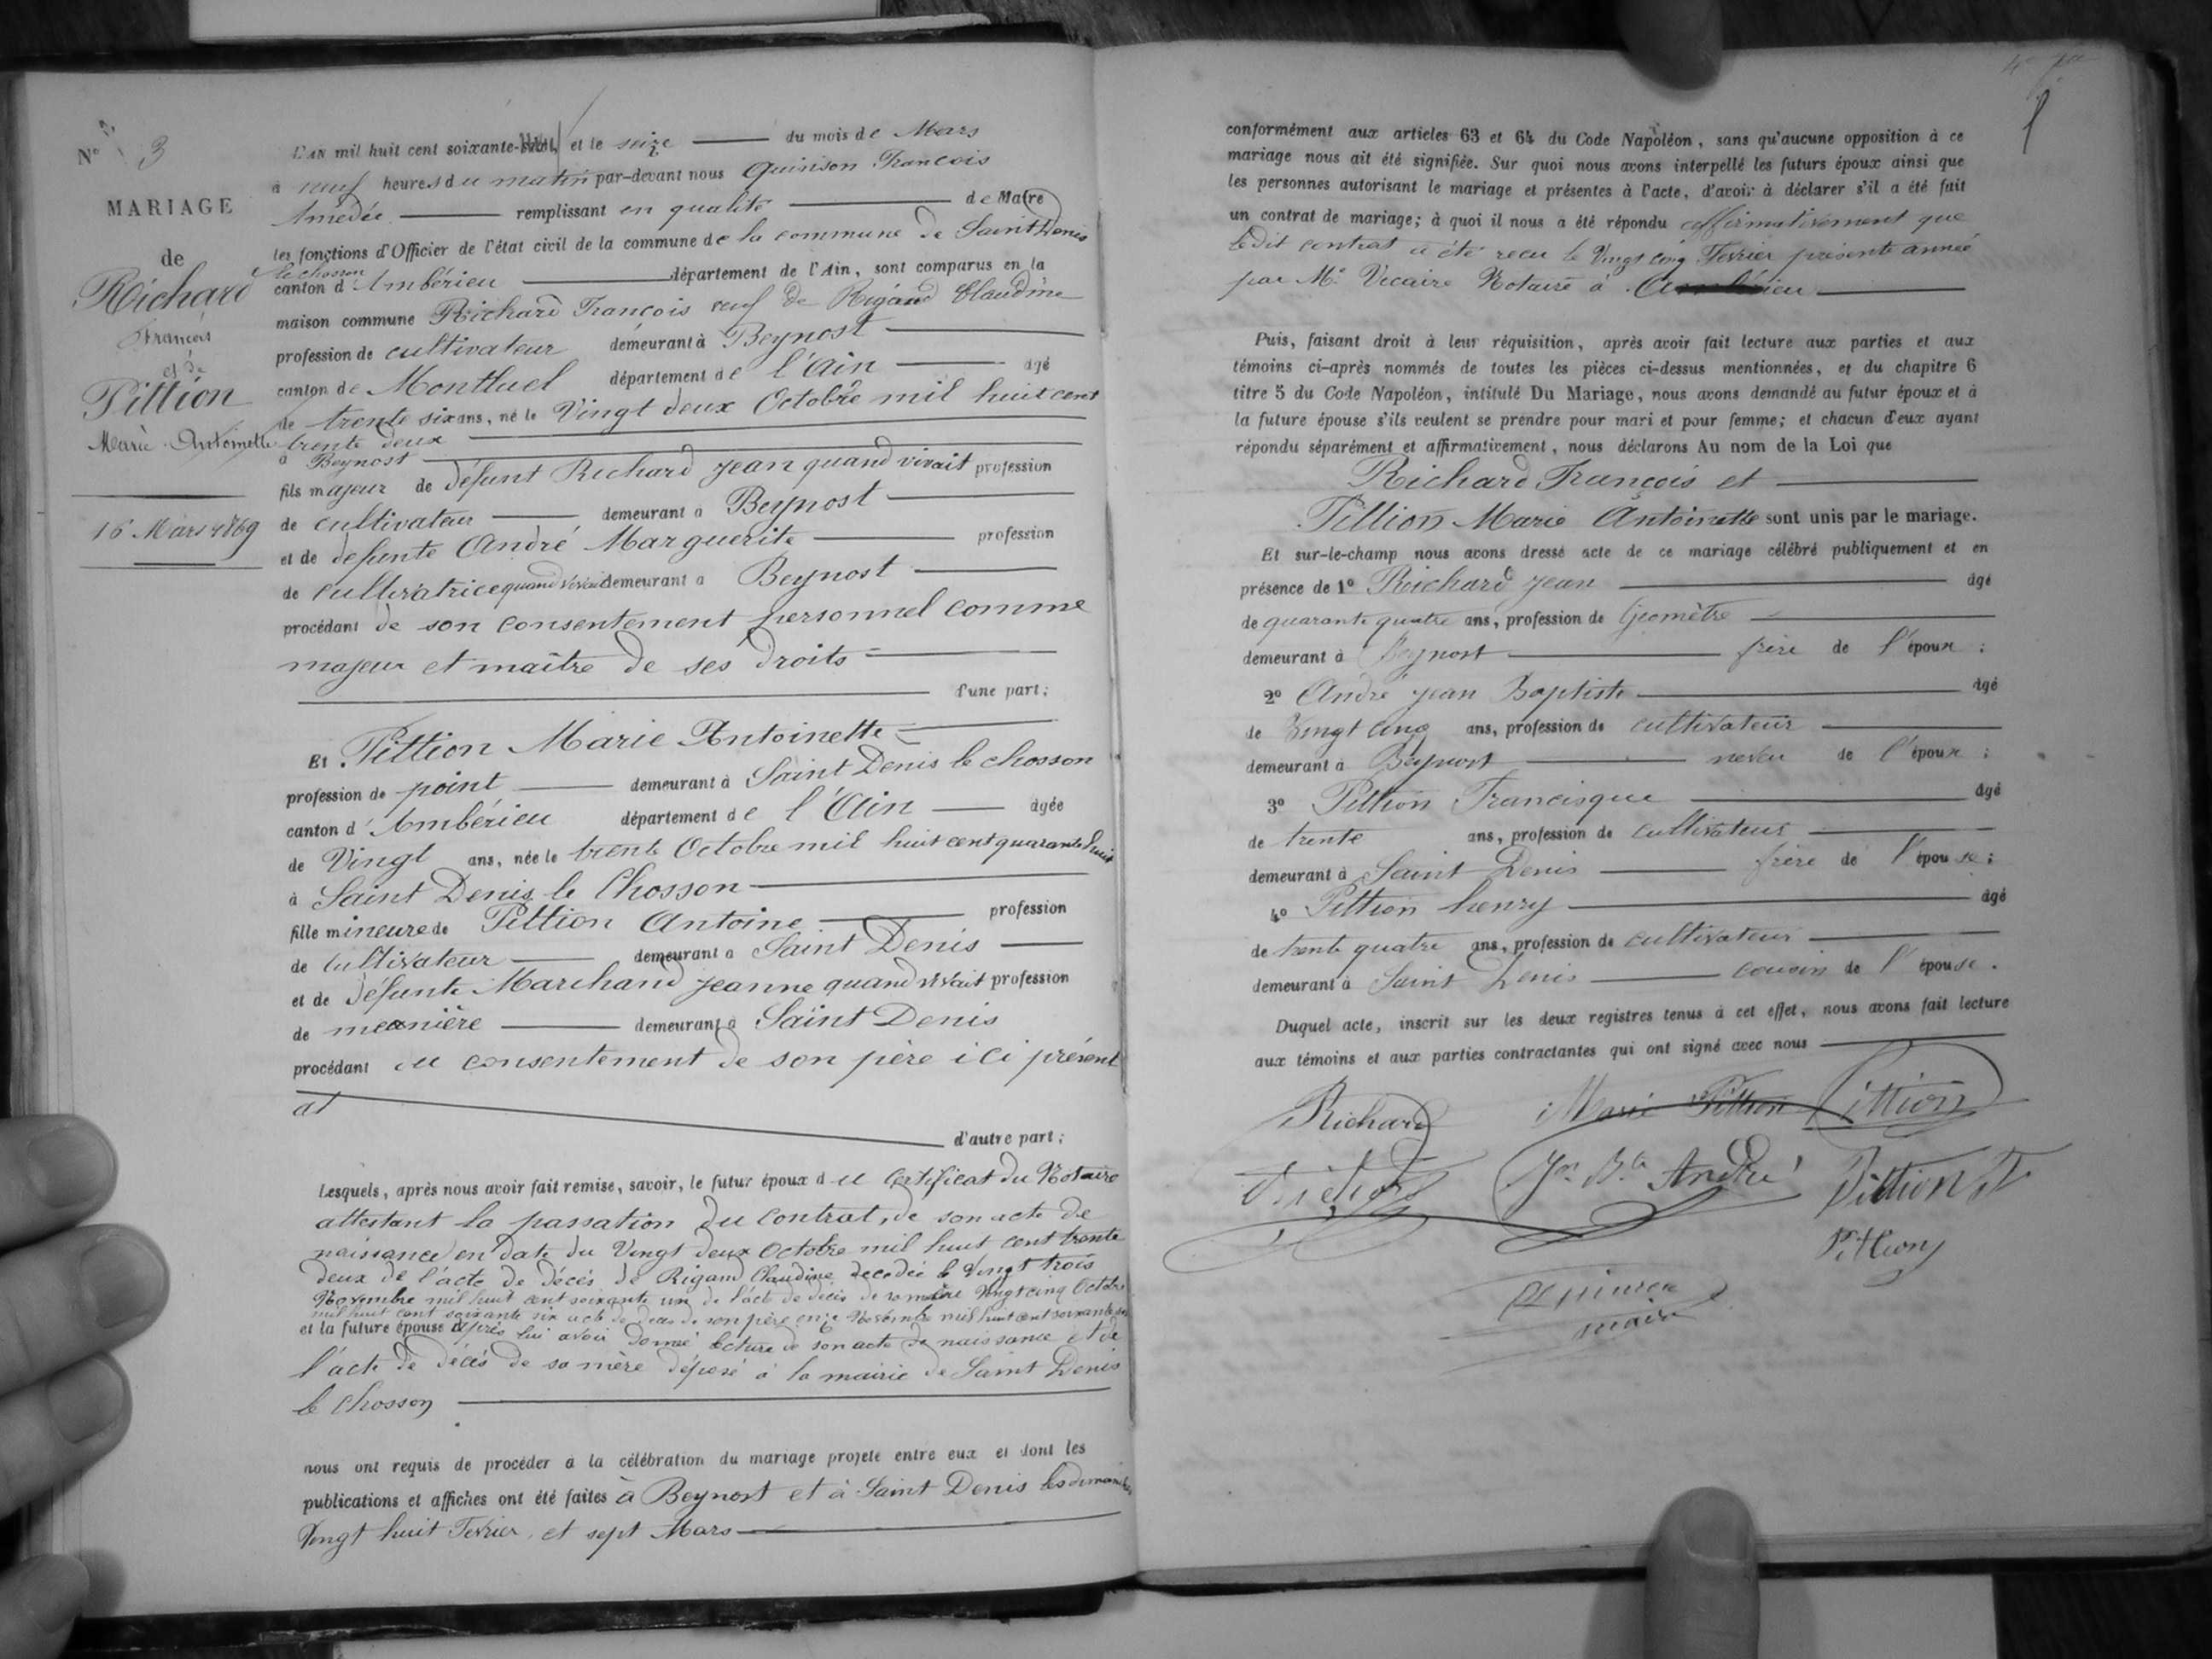 N° 3
MARIAGE
de
Richard
François
et de
Pittion
Marie Antoinette
16 Mars 1869
L'AN mil huit cent soixante-neuf, et le seize du mois de Mars
à neuf heures du matin par-devant nous Quinson François
Amédée remplissant en qualité de Maire
les fonctions d'Officier de l'état civil de la commune de la commune de Saint Denis
le chosson
canton d'Ambérieu département de l'Ain, sont comparus en la
maison commune Richard François veuf de Rigaud Claudine
profession de cultivateur demeurant à Beynost
canton de Montluel département de l'Ain âgé
de trente six ans, né le Vingt deux Octobre mil huit cent
trente deux
à Beynost
fils majeur de défunt Richard Jean quand vivait profession
de cultivateur demeurant à Beynost
et de défunte André Marguerite profession
de cultivatrice quand vivait demeurant à Beynost
procédant de son consentement personnel comme
majeur et maître de ses droits
d'une part;
Et Pittion Marie Antoinette
profession de point demeurant à Saint Denis le chosson
canton d'Ambérieu département de l'Ain âgée
de Vingt ans, née le trente Octobre mil huit cent quarante huit
à Saint Denis le Chosson
fille mineure de Pittion Antoine profession
de cultivateur demeurant à Saint Denis
et de défunte Marchand Jeanne quand vivait profession
de meunière demeurant à Saint Denis
procédant du consentement de son père ici présent
et
d'autre part;
Lesquels, après nous avoir fait remise, savoir, le futur époux du certificat du Notaire
attestant la passation du contrat, de son acte de
naissance en date du Vingt deux Octobre mil huit cent trente
deux de l'acte de décès de Rigaud Claudine décédée le Vingt trois
Novembre mil huit cent soixante un de l'acte de décès de sa mère Vingt cinq Octobre
mil huit cent soixante six acte de décès de son père onze Novembre mil huit cent soixante
et la future épouse après lui avoir donné lecture de son acte de naissance et de
l'acte de décès de sa mère déposé à la mairie de Saint Denis
le Chosson
nous ont requis de procéder à la célébration du mariage projeté entre eux et dont les
publications et affiches ont été faites à Beynost et à Saint Denis les dimanches
Vingt huit Fevrier, et sept Mars
conformément aux articles 63 et 64 du Code Napoléon, sans qu'aucune opposition à ce
mariage nous ait été signifiée. Sur quoi nous avons interpellé les futurs époux ainsi que
les personnes autorisant le mariage et présentes à l'acte, d'avoir à déclarer s'il a été fait
un contrat de mariage; à quoi il nous a été répondu affirmativement que
ledit contrat a été recu le Vingt cinq Fevrier présente année
par Me Vicaire Notaire à Ambérieu
Puis, faisant droit à leur réquisition, après avoir fait lecture aux parties et aux
témoins ci-après nommés de toutes les pièces ci-dessus mentionnées, et du chapitre 6
titre 5 du Code Napoléon, intitulé Du Mariage, nous avons demandé au futur époux et à
la future épouse s'ils veulent se prendre pour mari et pour femme; et chacun d'eux ayant
répondu séparément et affirmativement, nous déclarons Au nom de la Loi que
Richard François et
Pittion Marie Antoinette sont unis par le mariage.
Et sur-le-champ nous avons dressé acte de ce mariage célébré publiquement et en
présence de 1° Richard Jean âgé
de quarante quatre ans, profession de Géomètre
demeurant à Beynost frère de l'époux;
2° André Jean Baptiste âgé
de Vingt cinq ans, profession de cultivateur
demeurant à Beynost neveu de l'époux;
3° Pittion Francisque âgé
de trente ans, profession de cultivateur
demeurant à Saint Denis frère de l'épouse;
4° Pittion henry âgé
de trente quatre ans, profession de cultivateur
demeurant à Saint Denis cousin de l'épouse.
Duquel acte, inscrit sur les deux registres tenus à cet effet, nous avons fait lecture
aux témoins et aux parties contractantes qui ont signé avec nous
Richard Marie Pittion Pittion
Richard Jn Bte André Pittion F
Pittion
Quinson
maire